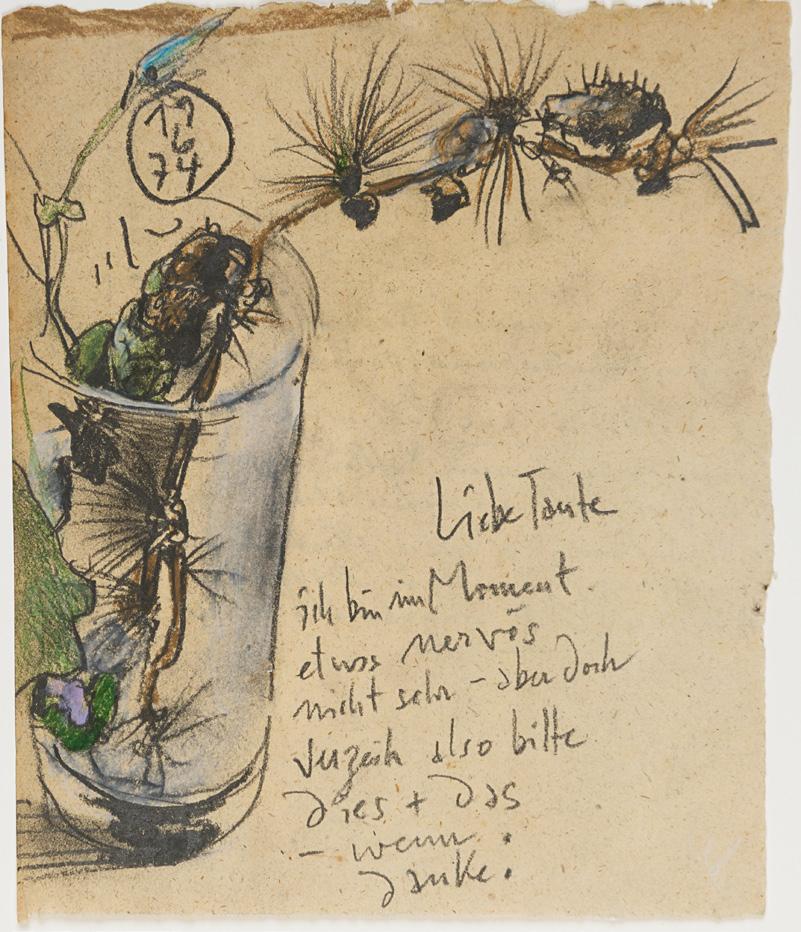 19
6
74
Liebe Tante
ich bin im Moment
etwas nervös
nicht sehr – aber doch
verzeih also bitte
dies + das
– wenn
danke.